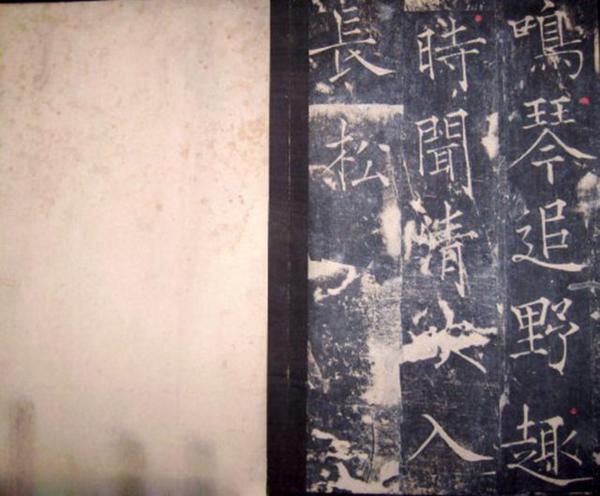 鳴琴追野趣
時聞清吹入
長松